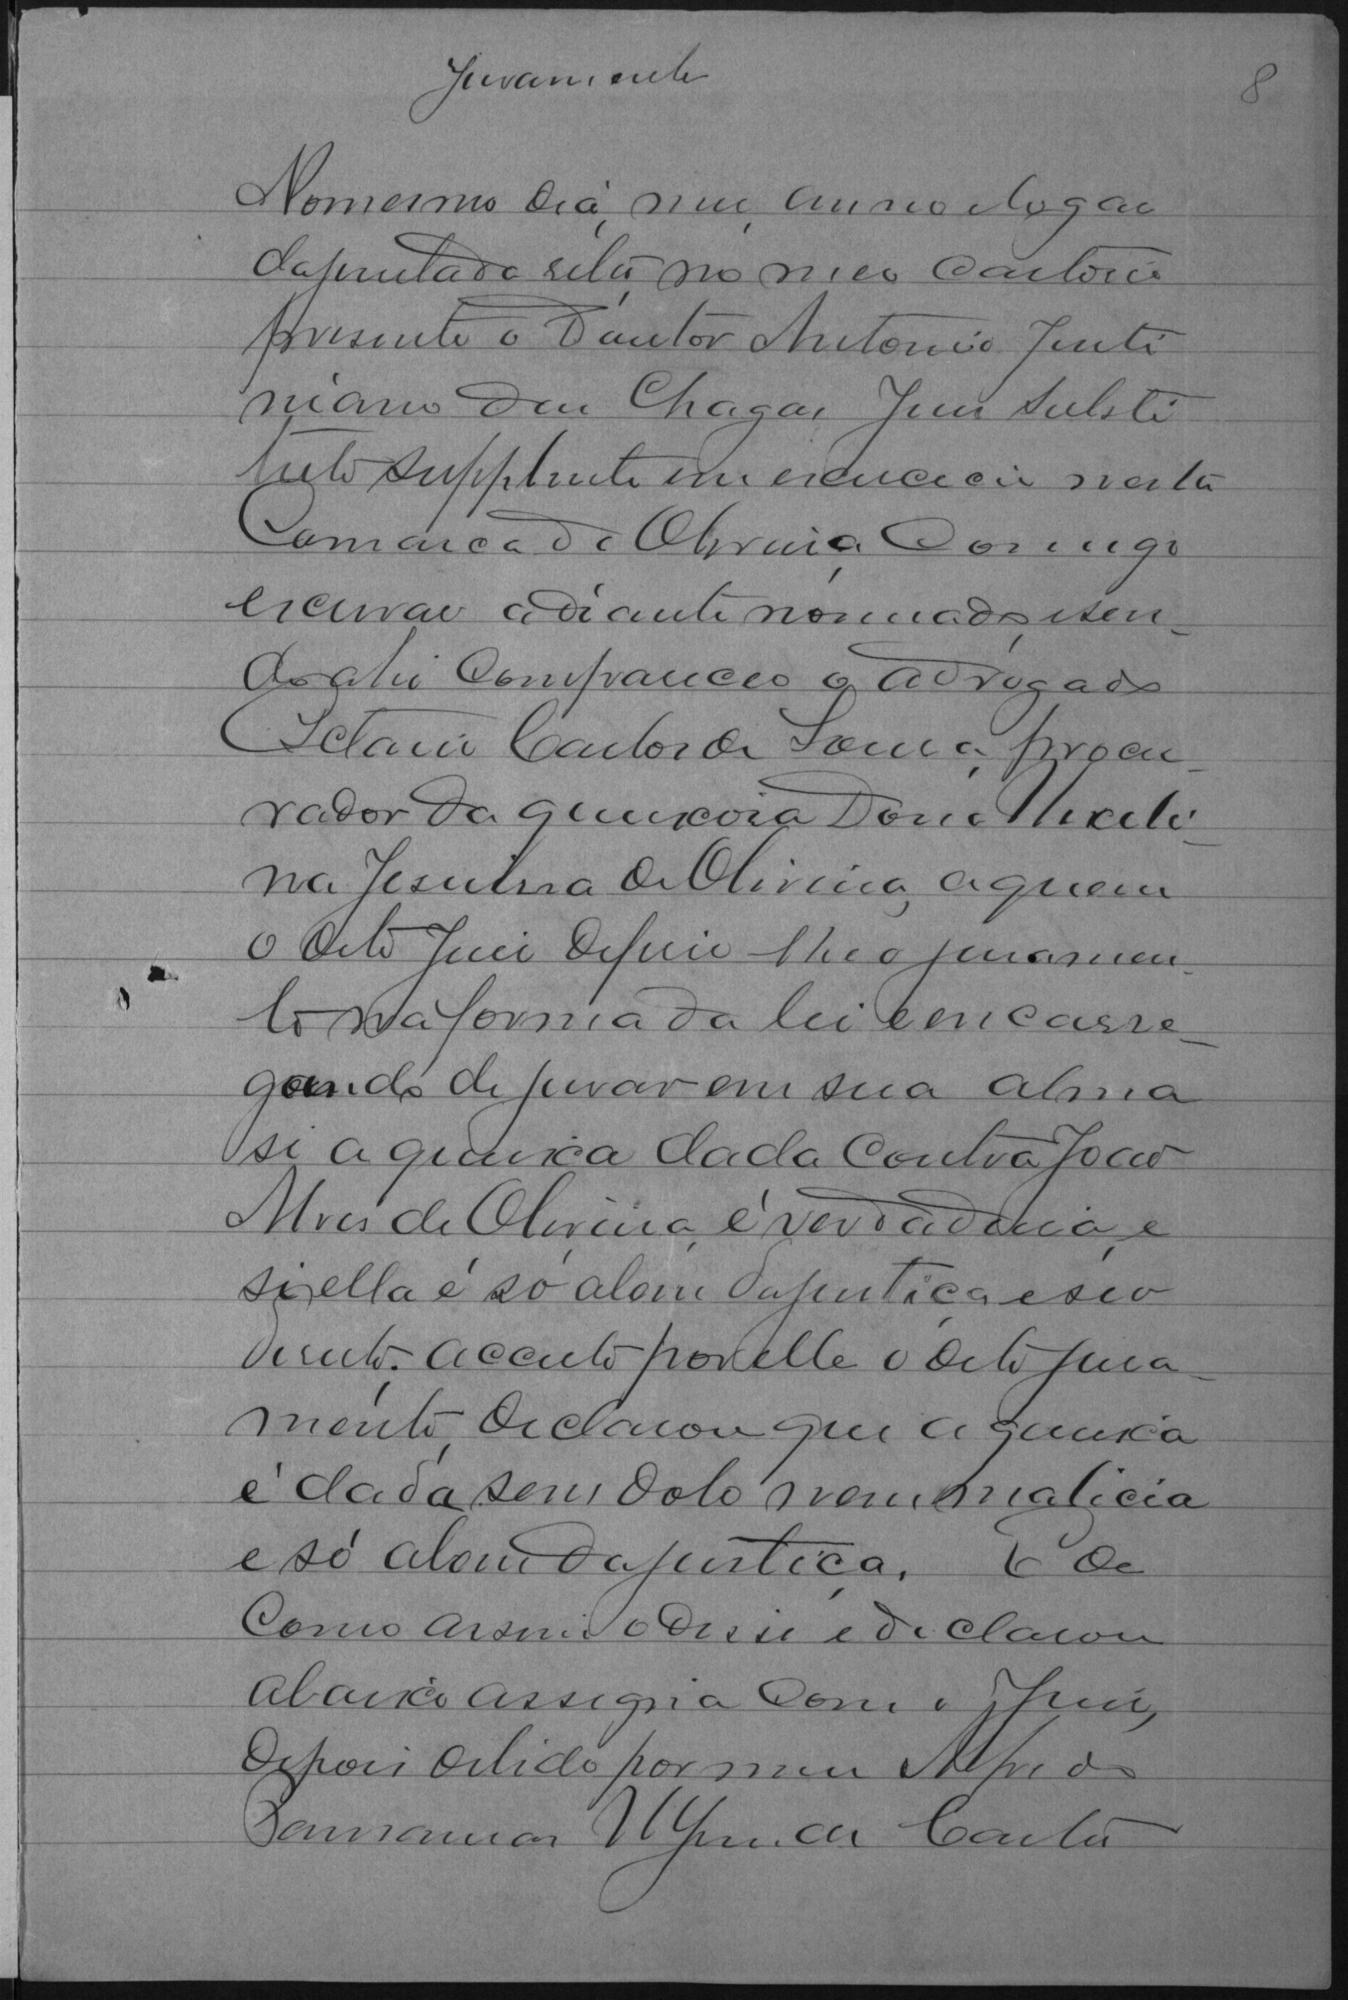 Juramento
8
No mesmo dia, mez, anno e logar
da petada retro, no meo cartorio
presente o Doutor Antonio Justi
niano das Chagas Juiz substi
tuto supplente em exercicio nesta
Comarca de Oliveira, Comigo
escrivão adiante nomeado, e sen-
do ahi compareceo o advogado
Octavio Carlos de Souza, procu-
rador da queixosa Dona
na Jesuina de Oliveira, a quem
o dito Juiz deferio lhe o juramen-
to na forma da lei e encarre-
gando de jurar em sua alma
si a queixa dada contra João
Alves de Oliveira, é verdadeira, e
si ella é só a bem da justiça e seo
direito. Acceito por elle o dito jura-
mento, declarou que a queixa
é dada sem dolo nem malicia
e só a bem da justiça. E de
como assim o disse e declarou
abaixo assigna com o Juiz,
depois de lido por mim Alfredo
da Costa